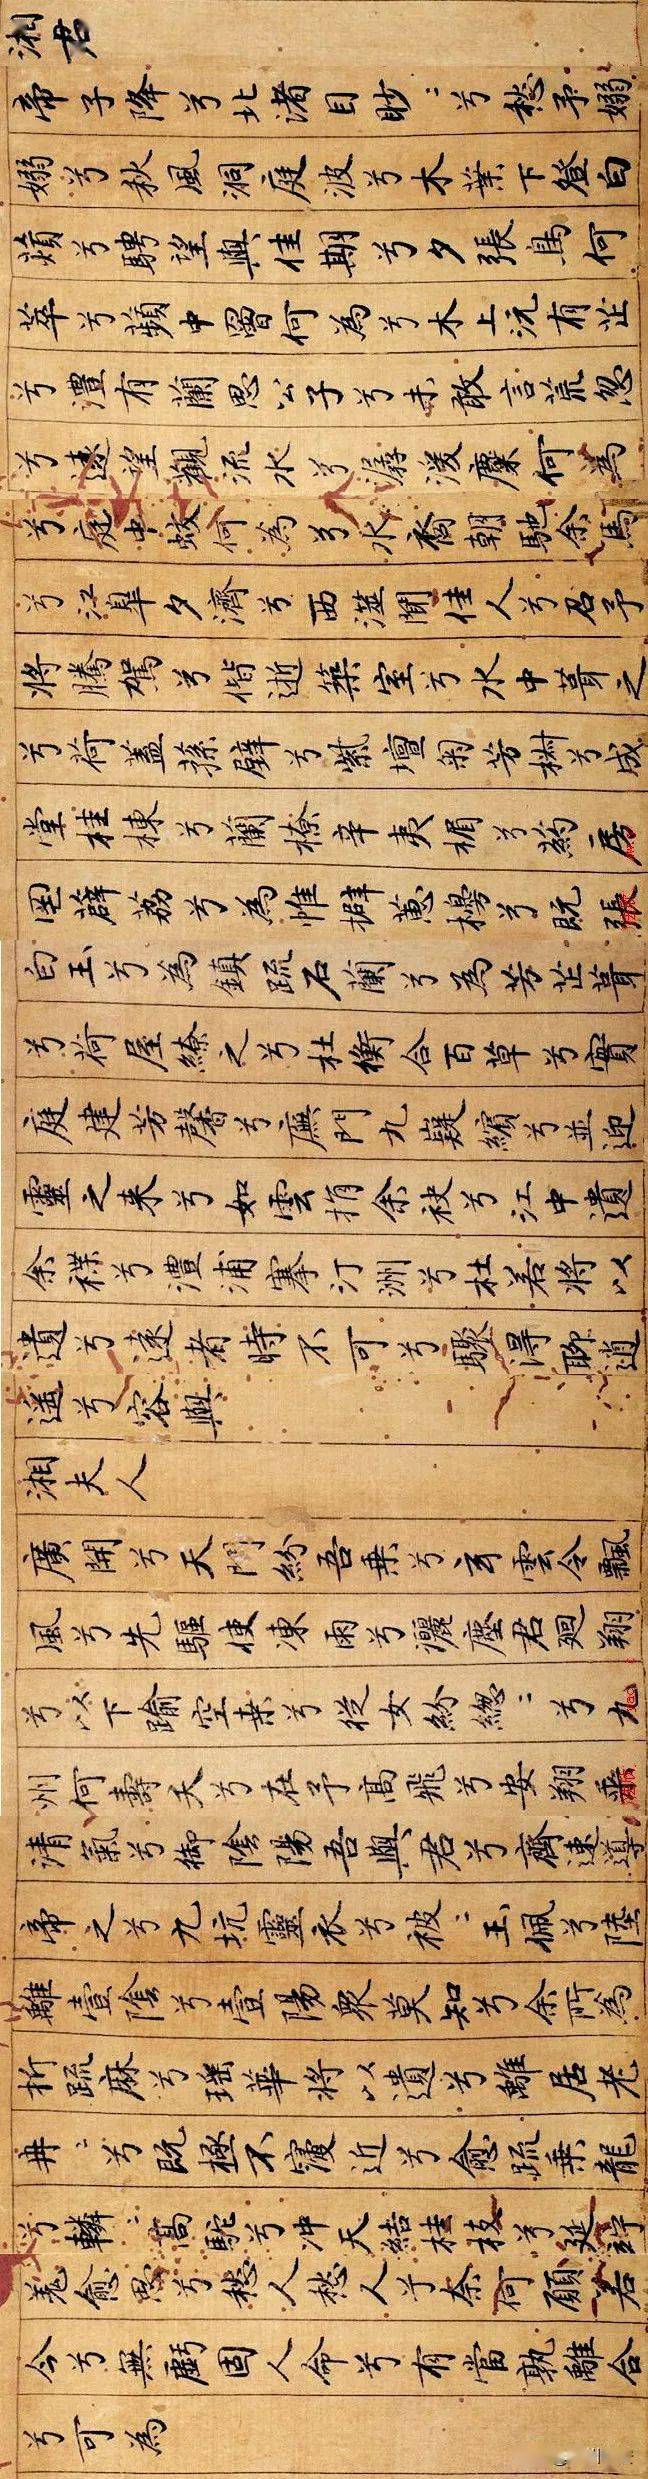 湘君
帝子降兮北渚目眇〻兮愁予嫋
嫋兮秋風洞庭波兮木葉下登白
薠兮騁望與佳期兮夕張鳥何
萃兮蘋中罾何為兮木上沅有芷
兮澧有蘭思公子兮未敢言荒忽
兮遠望觀流水兮潺湲麋何為
兮庭中蛟何為兮水裔朝馳余馬
兮江皋夕濟兮西澨聞佳人兮召予
將騰駕兮偕逝築室兮水中葺之
兮荷蓋蓀壁兮紫壇匊芳椒兮成
堂桂棟兮蘭橑辛夷楣兮葯房
罔薜荔兮為帷擗蕙櫋兮既張
白玉兮為鎮疏石蘭兮為芳芷葺
兮荷屋繚之兮杜衡合百草兮實
庭建芳馨兮廡門九嶷繽兮並迎
靈之来兮如雲捐余袂兮江中遺
余褋兮澧浦搴汀洲兮杜若將以
遺兮遠者時不可兮驟得聊逍
遙兮容與
湘夫人
廣開兮天門紛吾乗兮玄雲令飄
風兮先驅使凍雨兮灑塵君迴翔
兮以下踰空桒兮從女紛緫〻兮九
州何壽夭兮在予高飛兮安翔乗
清氣兮御陰陽吾與君兮齊速導
帝之兮九坑靈衣兮被〻玉佩兮陸
離壹陰兮壹陽衆莫知兮余所為
折疏麻兮瑶華將以遺兮離居老
冉〻兮既極不寖近兮愈疏乗龍
兮轔〻高駝兮冲天結桂枝兮延竚
羌愈思兮愁人愁人兮奈何願若
今兮無虧固人命兮有當孰離合
兮可為